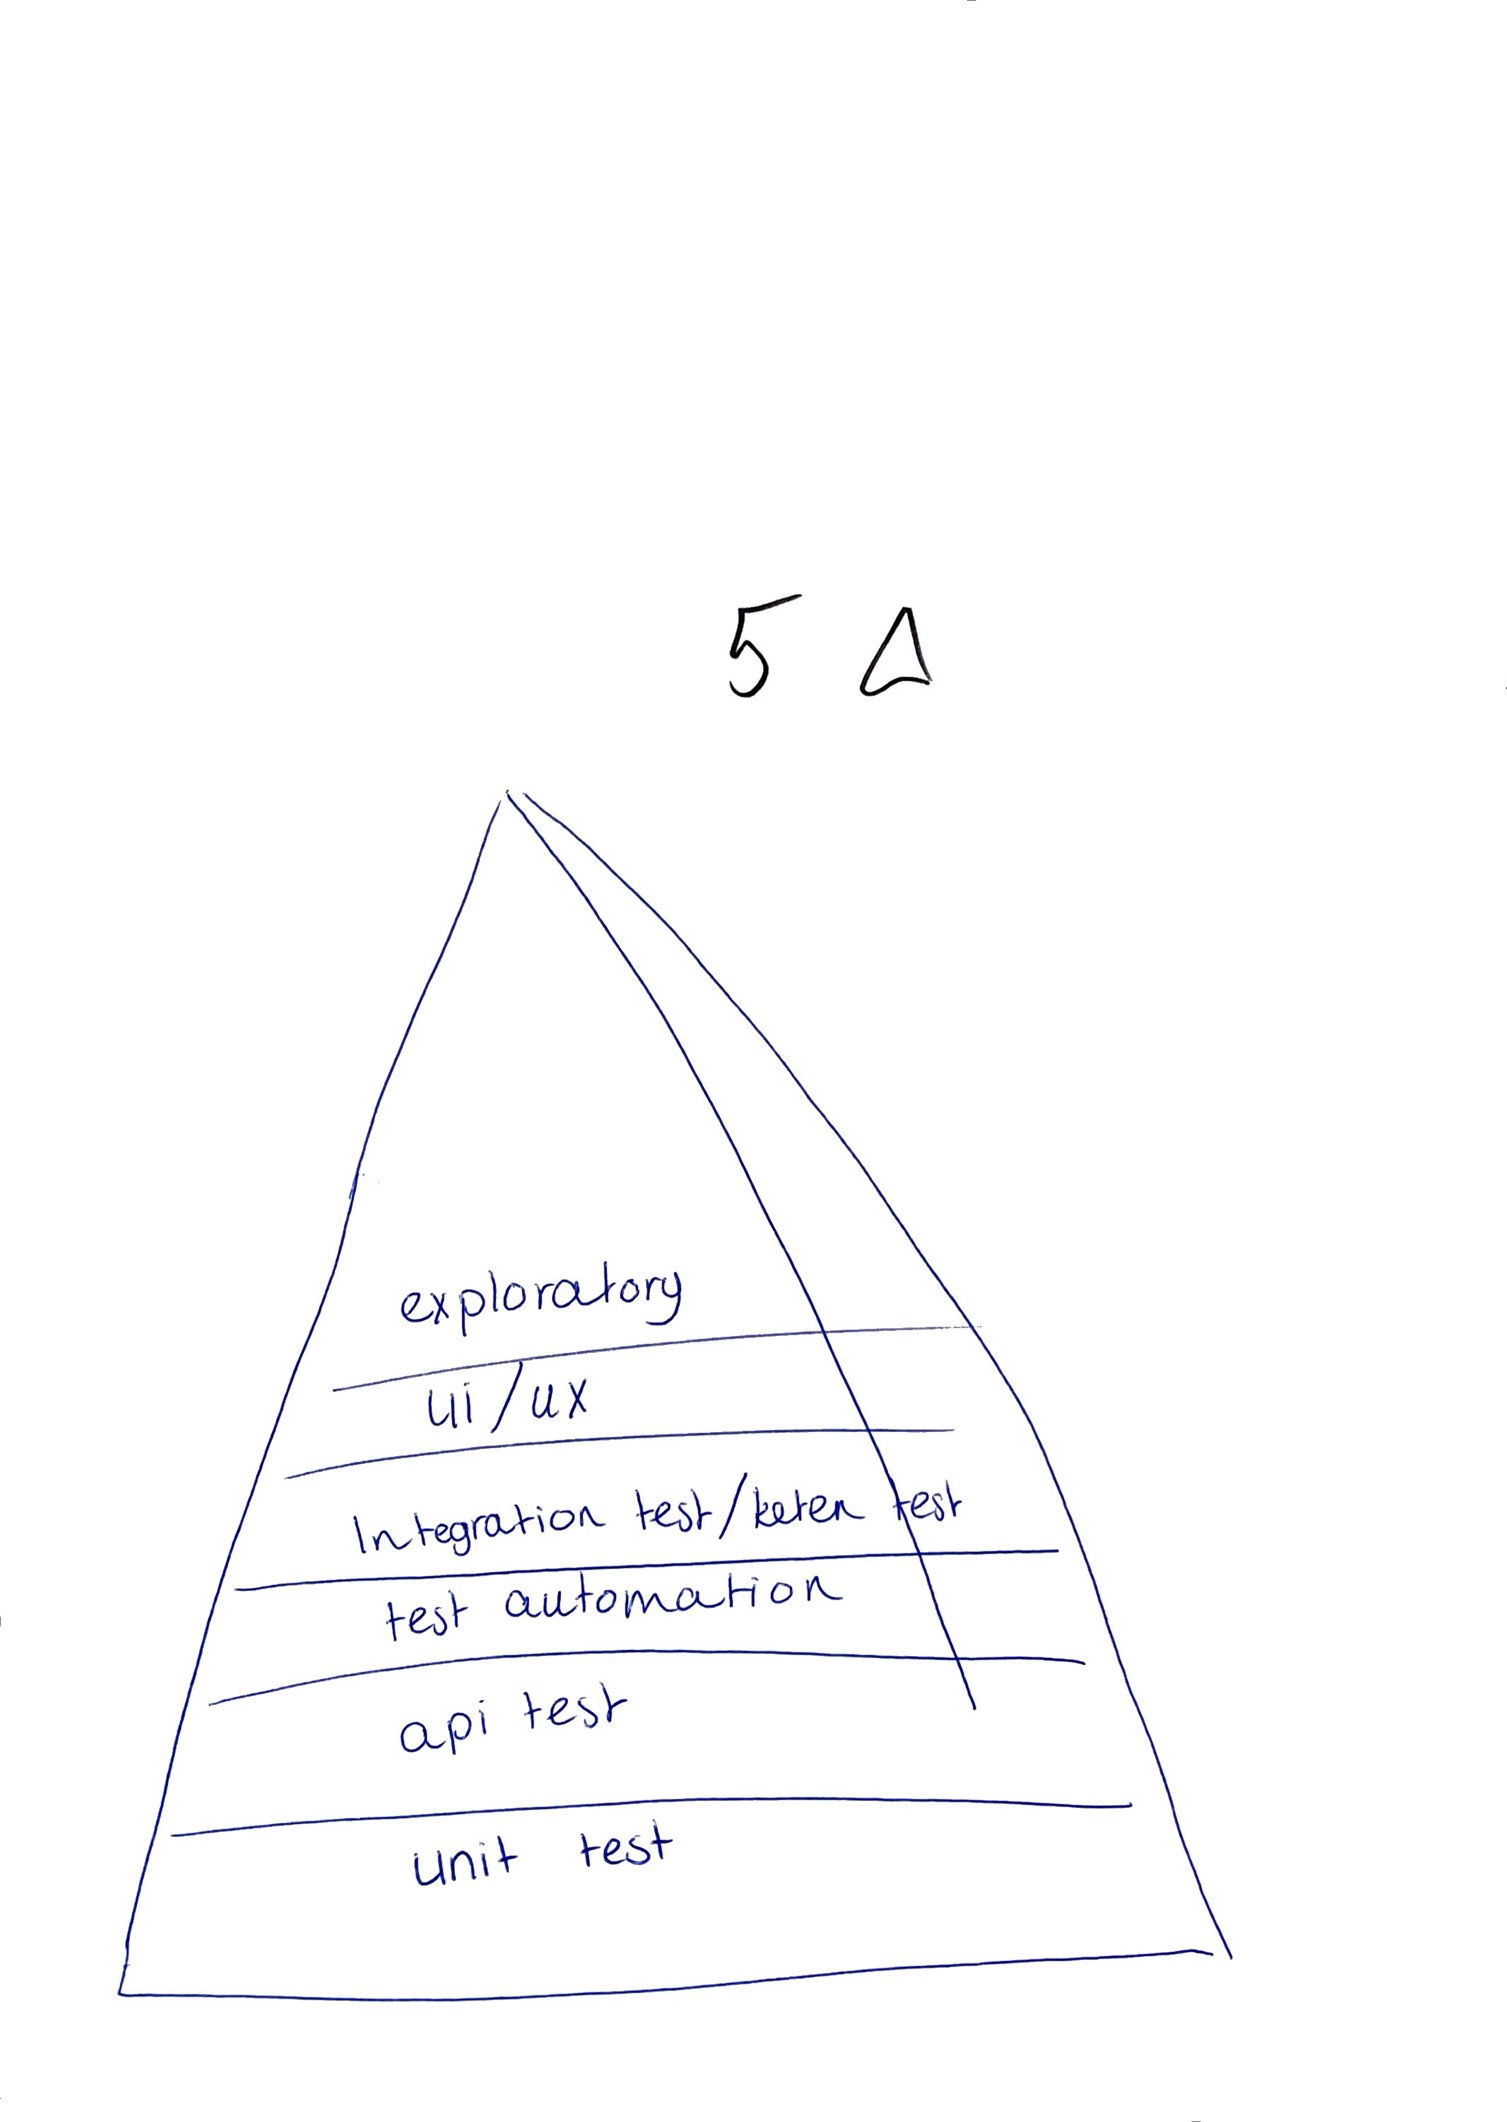 5 A
exploratory
ui/ux
Integration test/keten test
test automation
api test
unit test